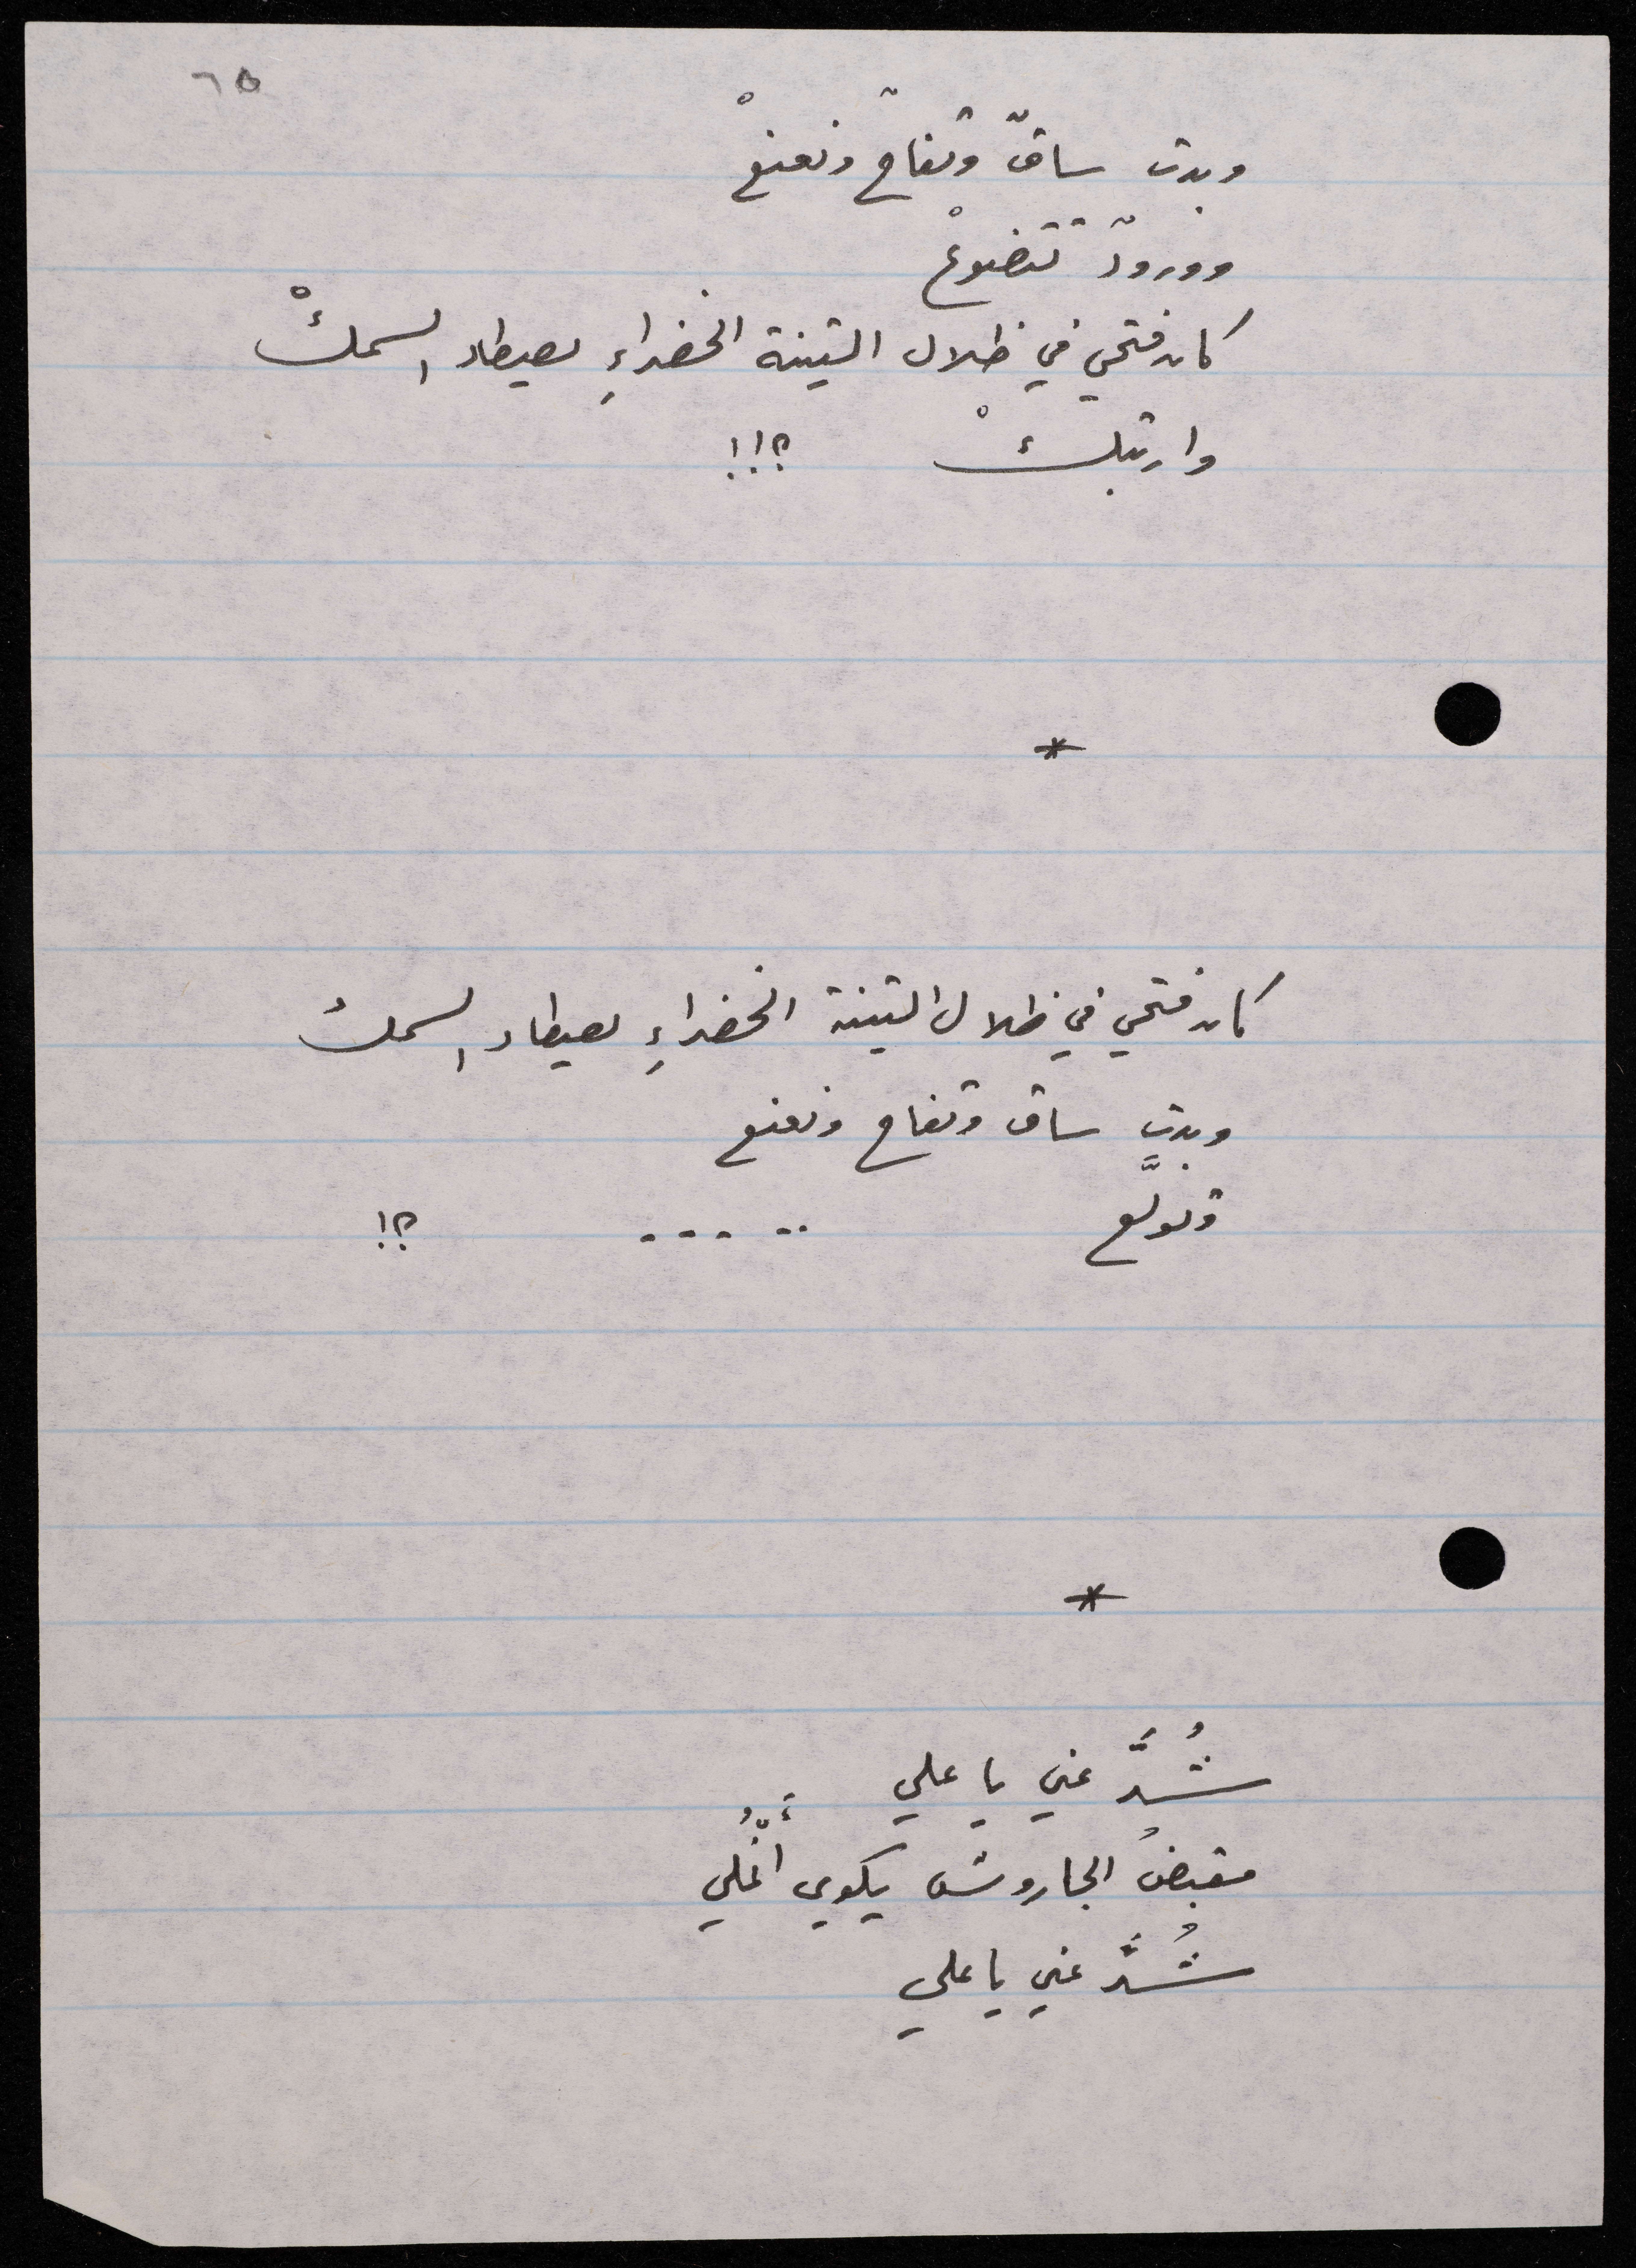 ٦٥
وبدت ساقٌ وتفاحٌ ونعنعْ
وورودٌ تتضوعْ
كان فتحي في ظلال التينة الخضراءِ يصطاد السمكْ
وارتبكْ ؟!!!
*
كان فتحي في ظلال التينة الخضراءِ يصطاد السمك
وبدت ساق وتفاح ونعنع
وتولَّع ..... ؟!
*
شُدَّ عني يا علي
مقبضُ الجاروش يكوي أنمُلي
شُدَّ عني يا علي